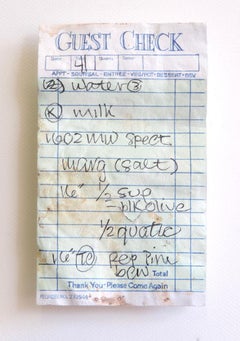 GUEST CHECK
41
APPT - SOUP/SAL - ENTREE - VEG/POT - DESSERT - BEV
② water ③
Ⓚ milk
1602 MW Spect
Marg (salt)
16" 1/2 sup
= blk olive
1/2 quatic
16" TC Pep Pine
bcn Total
Thank You - Please Come Again